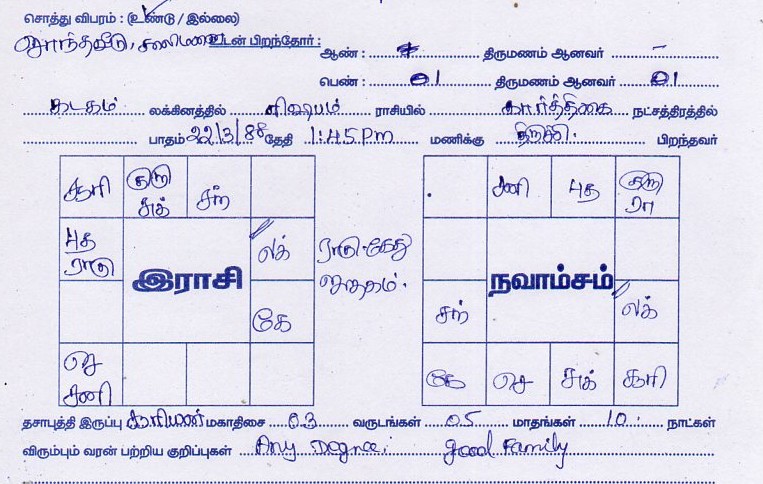 சொத்து விபரம் : (உண்டு / இல்லை)
சொந்தவீடு, உடன் பிறந்தோர் :
ஆண் : திருமணம் ஆனவர் –
பெண் : 01 திருமணம் ஆனவர் 01
கடகம் லக்கினத்தில் ரிஷபம் ராசியில் கார்த்திகை நட்சத்திரத்தில்
பாதம் 22/3/88 தேதி 1:45 Pm மணிக்கு பிறந்தவர்
சூரி குரு சுக் சந்
புத ராகு லக்
இராசி
கே
செ சனி
ராகு-கேது ஜாதகம்.
சனி புத குரு ரா
நவாம்சம்
சந் லக்
கே செ சுக் சூரி
தசாபுத்தி இருப்பு சூரியன் மகாதிசை 03 வருடங்கள் 05 மாதங்கள் 10 நாட்கள்
விரும்பும் வரன் பற்றிய குறிப்புகள் Any Degree, good Family